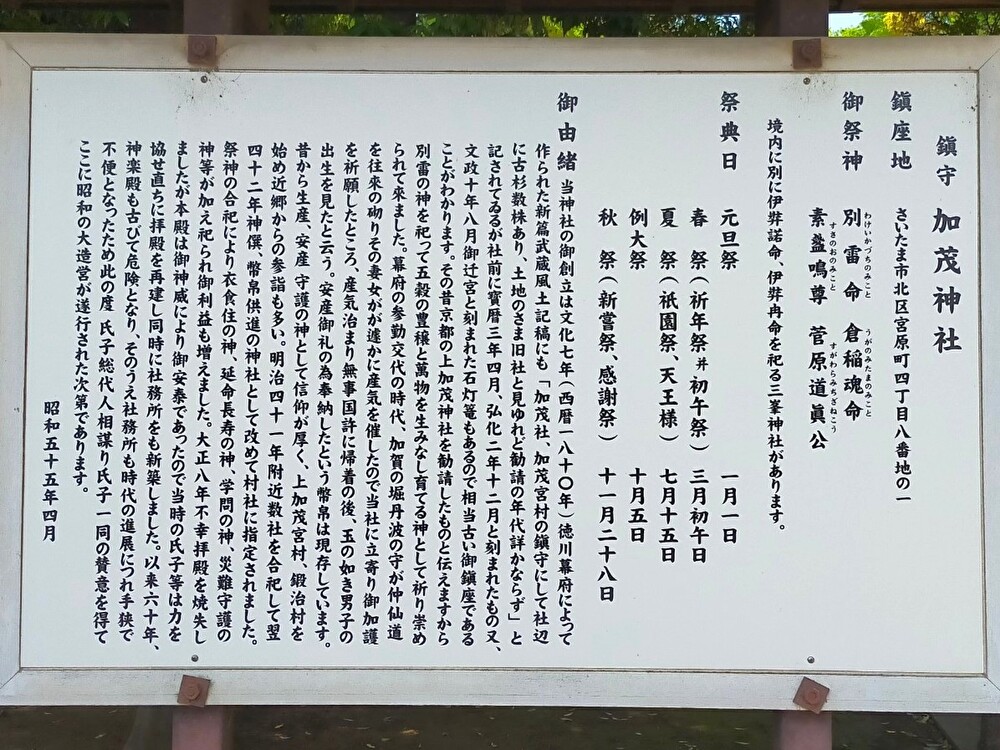 鎮守 加茂神社
鎮座地 さいたま市北区宮原町四丁目八番地の一
御祭神 別雷命 倉稲魂命
わけいかづちのみこと うがのみたまのみこと
素盞鳴尊 菅原道眞公
すさのおのみこと すがわらみちざねこう
境内に別に伊弉諾命、伊弉冉命を祀る三峯神社があります。
祭典日 元旦祭 一月一日
春祭（祈年祭并初午祭） 三月初午日
夏祭（祇園祭、天王様） 七月十五日
例大祭 十月五日
秋祭（新嘗祭、感謝祭） 十一月二十八日
御由緒 当神社の御創立は文化七年（西暦一八十〇年）徳川幕府によって
作られた新篇武蔵風土記稿にも「加茂社、加茂宮村の鎮守にして社辺
に古杉数株あり、土地のさま旧社と見ゆれど勧請の年代詳かならず」と
記されてゐるが社前に寳暦三年四月、弘化二年十二月と刻まれたもの又、
文政十年八月御迁宮と刻まれた石灯篭もあるので相当古い御鎮座である
ことがわかります。その昔京都の上加茂神社を勧請したものと伝えますから
別雷の神を祀って五穀の豊穣と萬物を生みなし育てる神として祈り崇め
られて来ました。幕府の参勤交代の時代、加賀の堀丹波の守が仲仙道
を往来の砌りその妻女がが遽かに産気を催したので当社に立寄り御加護
を祈願したところ、産気治まり無事国許に帰着の後、玉の如き男子の
出生を見たと云う。安産御礼の為奉納したという幣帛は現存しています。
昔から生産、安産 守護の神として信仰が厚く、上加茂宮村、鍛治村を
始め近郷からの参詣も多い。明治四十一年附近数社を合祀して翌
四十二年神饌、幣帛供進の神社として改めて村社に指定されました。
祭神の合祀により衣食住の神、延命長寿の神、学問の神、災難守護の
神等が加え祀られ御利益も増えました。大正八年不幸拝殿を焼失し
ましたが本殿は御神威により御安泰であったので当時の氏子等は力を
協せ直ちに拝殿を再建し同時に社務所をも新築しました。以来六十年、
神楽殿も古びて危険となり、そのうえ社務所も時代の進展につれ手狭で
不便となったため此の度 氏子総代人相謀り氏子一同の賛意を得て
ここに昭和の大造営が遂行された次第であります。
昭和五十五年四月